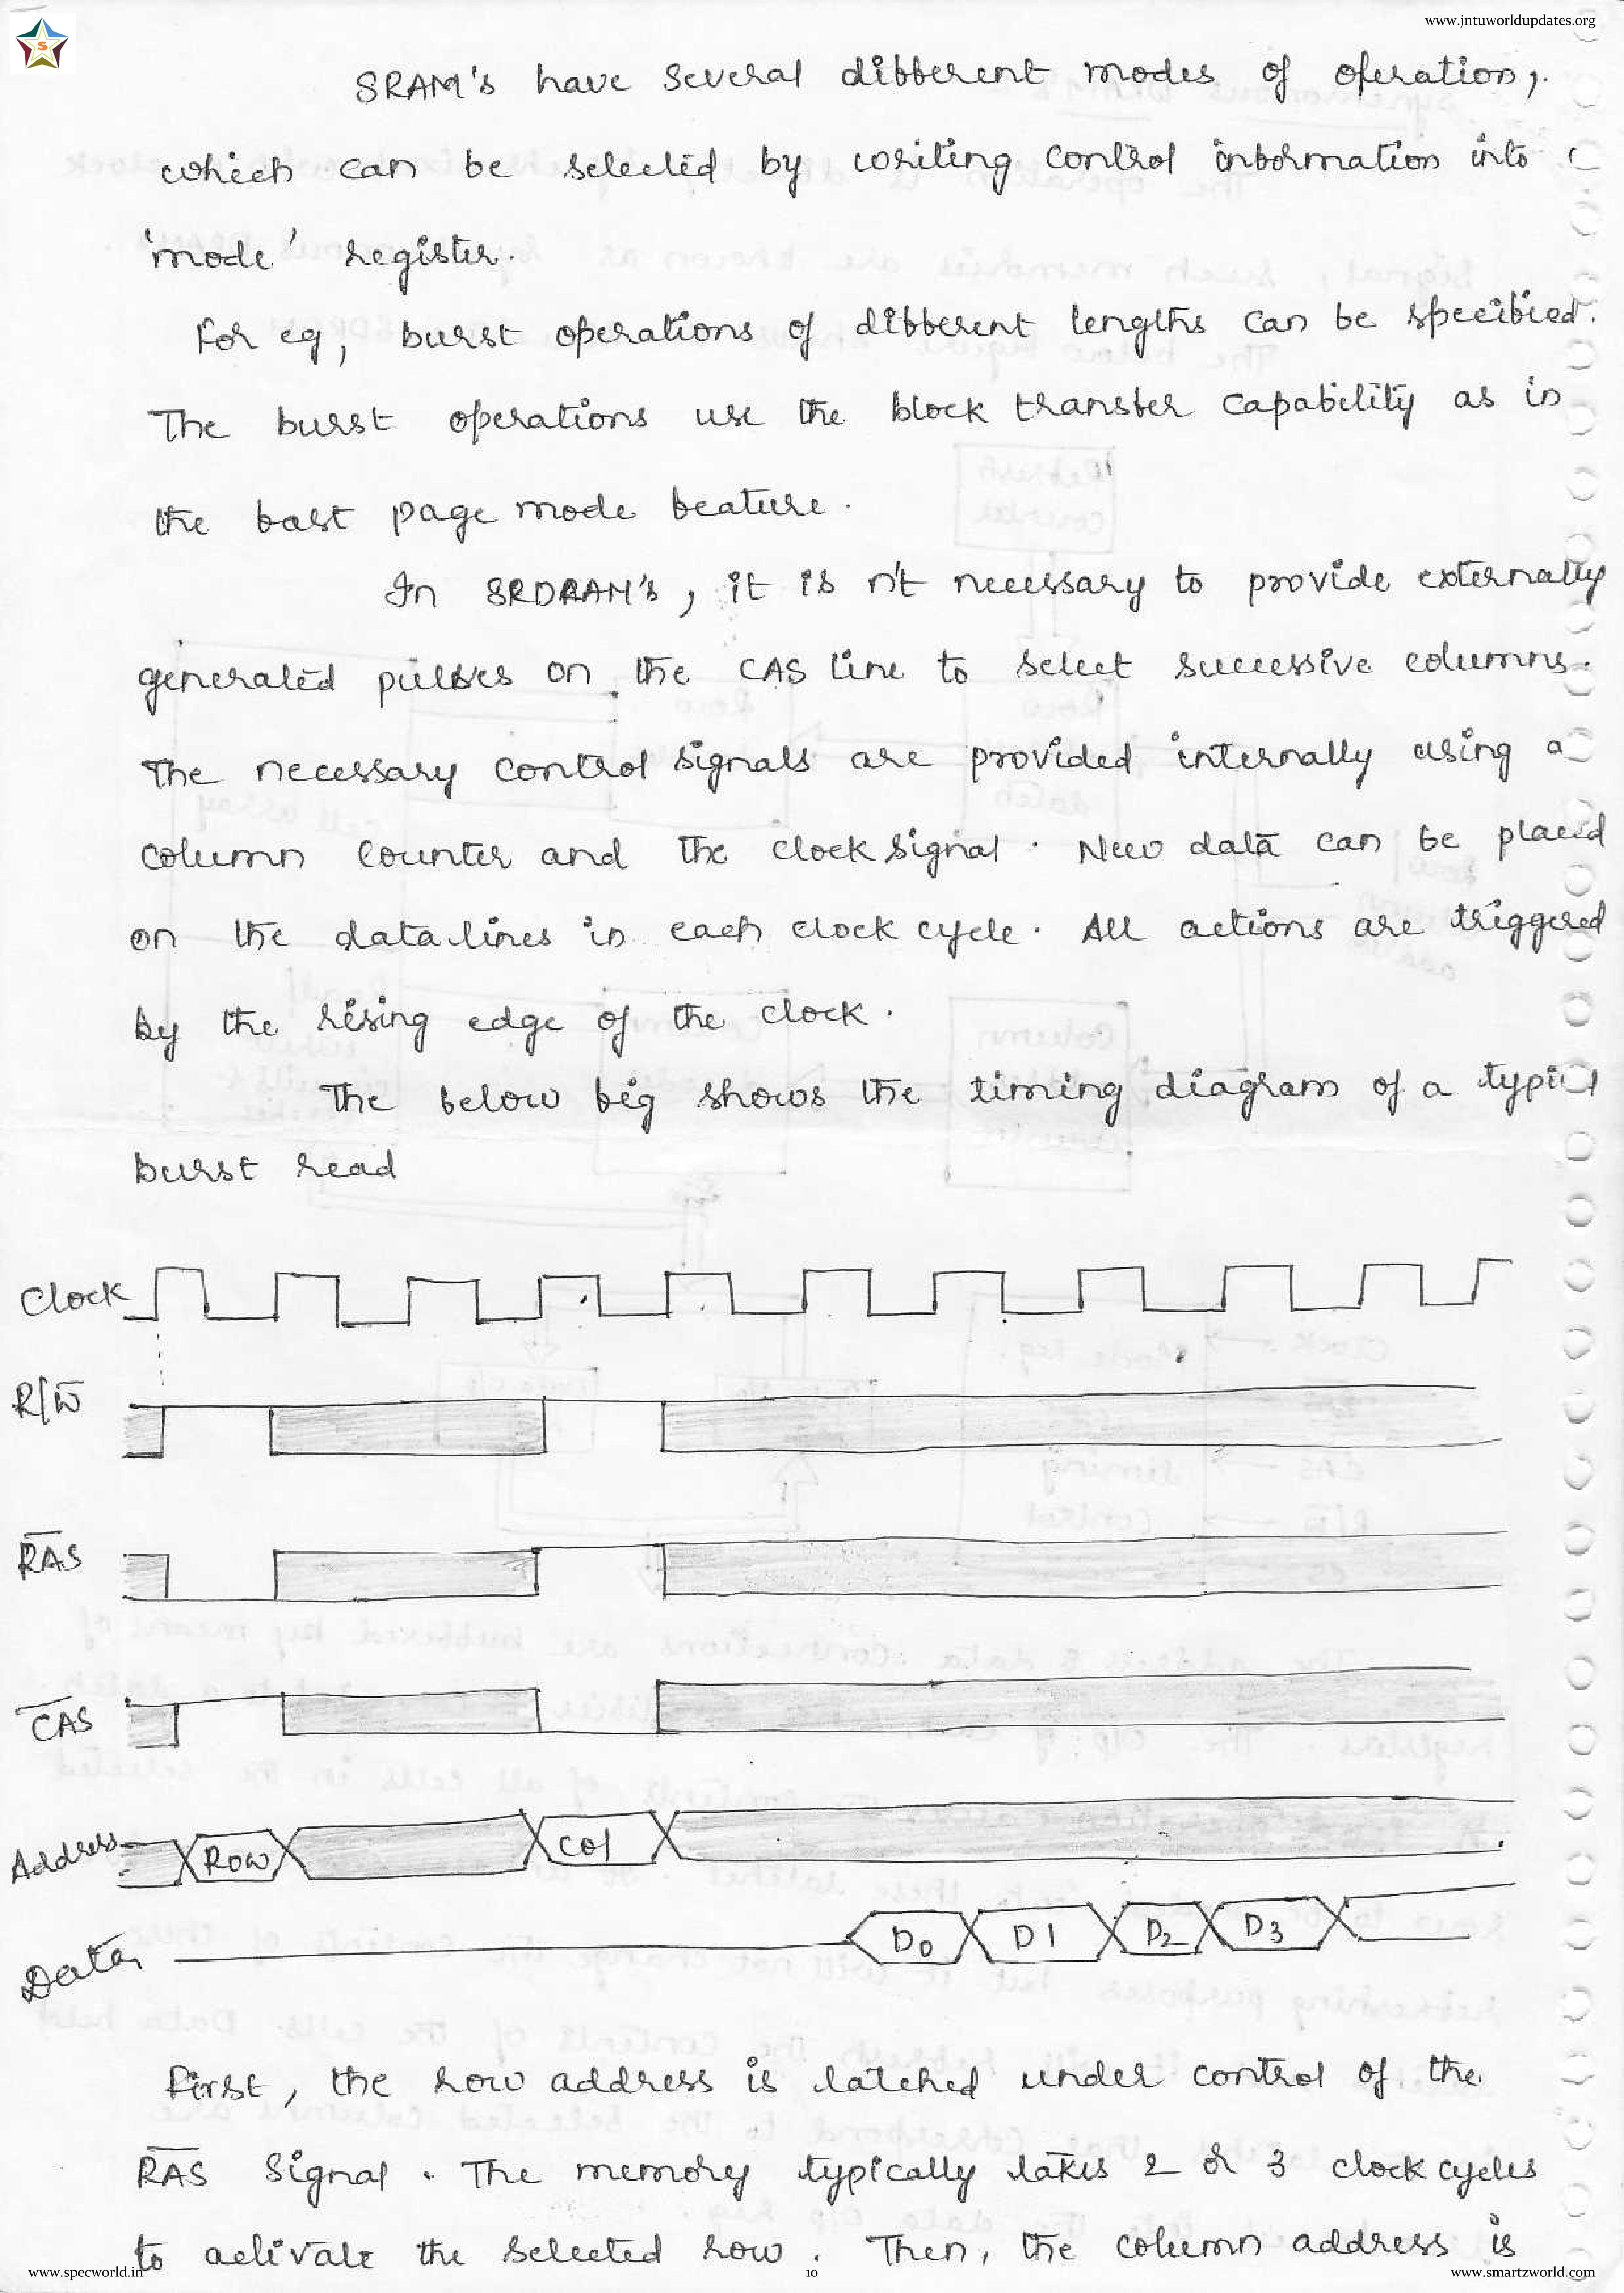 www.jntuworldupdates.org
S
SRAM's have several different modes of operation,
which can be selected by writing control information into
'mode' register.
For eg, burst operations of different lengths can be specified.
The burst operations use the block transfer capability as in
the fast page mode feature.
In SRDRAM's, it is n't necessary to provide externally
generated pulses on the CAS line to select successive columns.
The necessary control signals are provided internally using a
column counter and the clock signal. New data can be placed
on the data lines in each clock cycle. All actions are triggered
by the rising edge of the clock.
The below fig shows the timing diagram of a typical
burst read
Clock
R/W̅
R̅A̅S̅
C̅A̅S̅
Address
Row
Col
Data
D0
D1
D2
D3
First, the row address is latched under control of the
R̅A̅S̅ signal. The memory typically takes 2 or 3 clock cycles
to activate the selected row. Then, the column address is
www.specworld.in
10
www.smartzworld.com